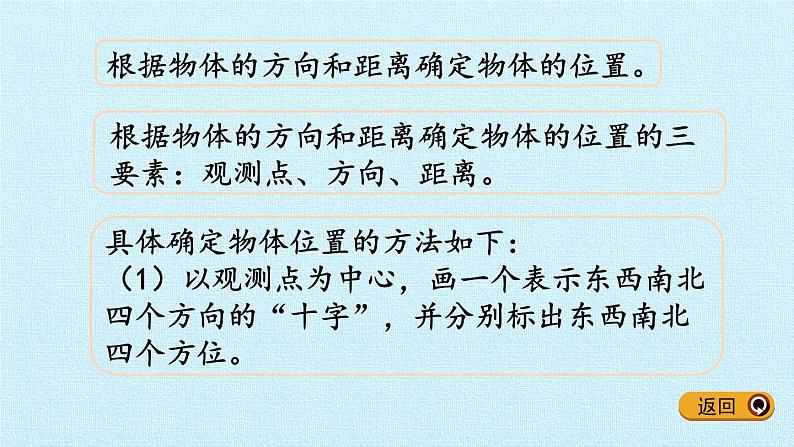 根据物体的方向和距离确定物体的位置。
根据物体的方向和距离确定物体的位置的三
要素：观测点、方向、距离。
具体确定物体位置的方法如下：
（1）以观测点为中心，画一个表示东西南北
四个方向的“十字”，并分别标出东西南北
四个方位。
返回